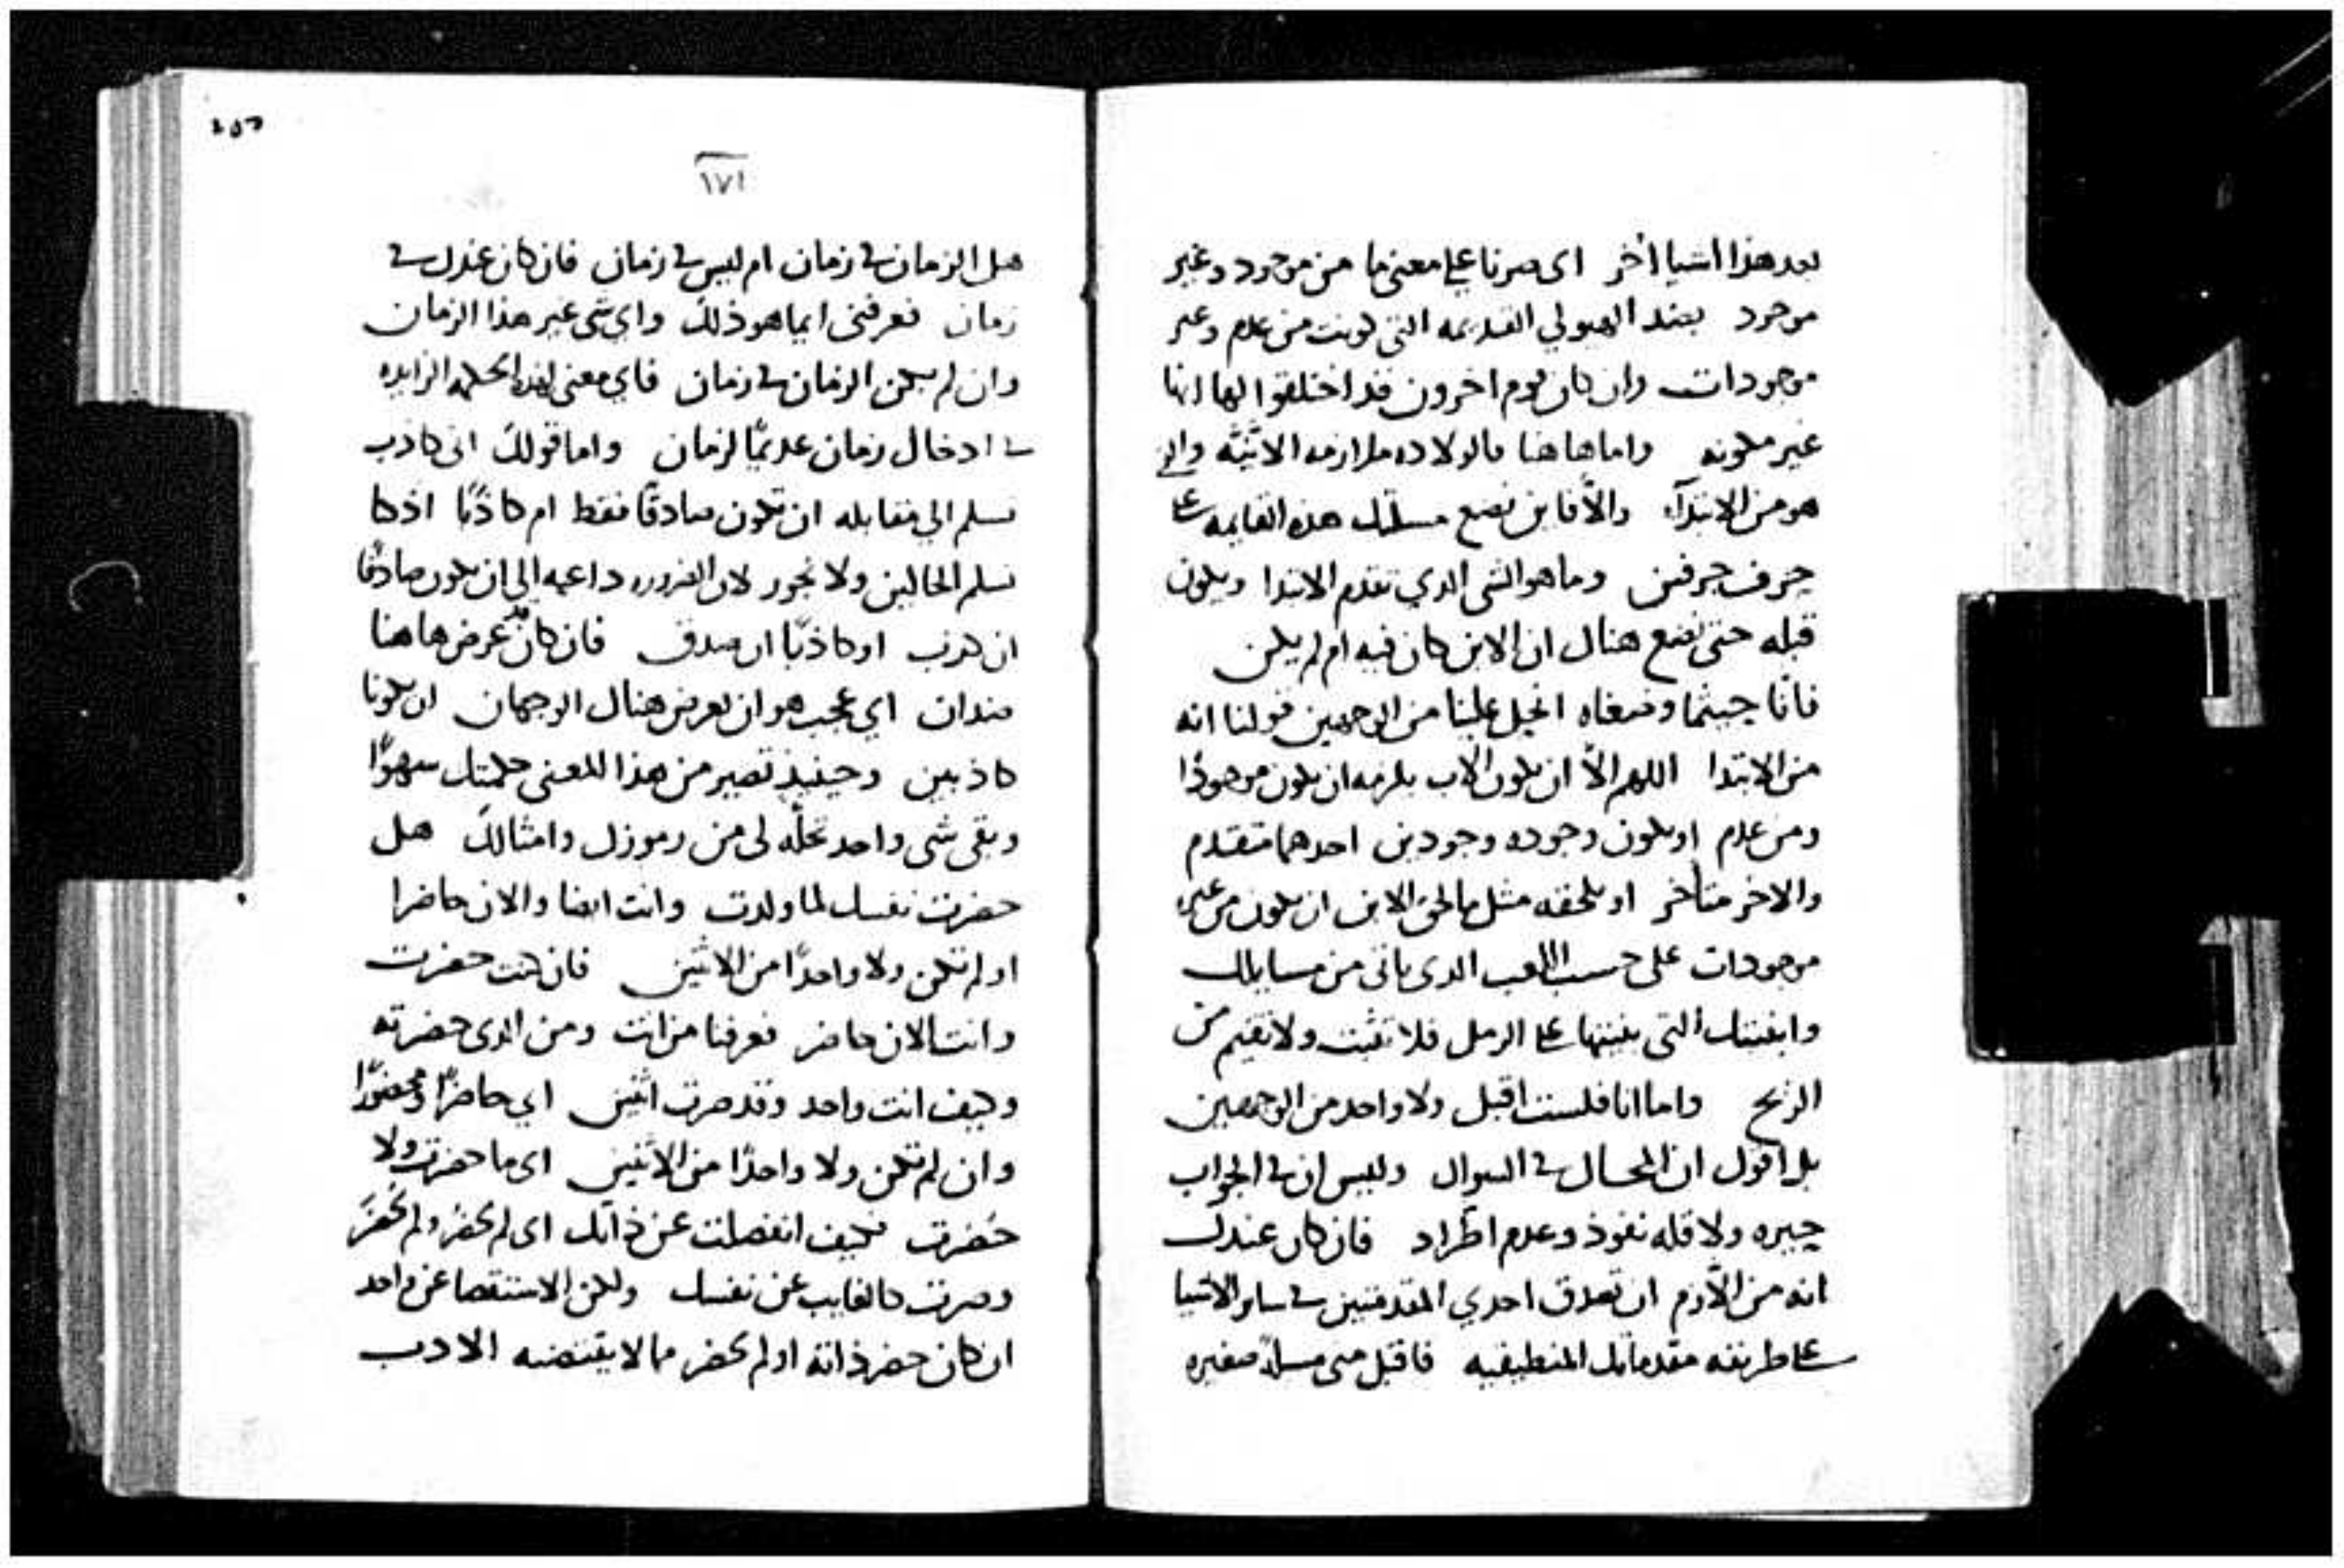 بعد هذا اشيا اُخر اى صرنا على معنى ما من موجود وغير
موجود بعد الهيولي القديمه التى كونت من عدم وغير
موجودات وان كان قوم اخرون قد اختلقوا لها انها
غير مكونه واما هاهنا فالولاده ملازمه الانيّه والى
هو من الابتدآء والّا فاين نضع مسلتك هذه القايمه على
جرف جرفين وما هو الشى الدي تقدم الابتدا ويكون
قبله حتى نضع هناك ان الابن كان فيه ام لم يكن
فانّا حيثما وضعناه انحل علينا من الوجهين قولنا انه
من الابتدا اللهم الّا ان يكون الاب يلزمه ان يكون موجودًا
ومن عدم او يكون وجوده وجودين احدهما متقدم
والاخر متأخر او يلحقه مثل ما لحق الابن ان يكون من غير
موجودات على حسب اللعب الدى ياتى من مسايلك
وابنيتك التى بنيتها على الرمل فلا تثبت ولا تقيم من
الريح واما انا فلست اقبل ولا واحد من الوجهين
بل اقول ان المحال في السوال وليس ان في الجواب
حيره ولا قله نفوذ وعدم اطّراد فان كان عندك
انه من الّلازم ان تصدق احدي المقدمتين في ساير الاشيا
على طريقه مقدماتك المنطيقيه فاقبل منى مسلةً صغيره
٢٥٥
١٧١
هل الزمان في زمان ام ليس في زمان فان كان عندك في
زمان فعرفنى ايما هو ذلك واي شى غير هذا الزمان
وان لم يكن الزمان في زمان فاي معنى لهذه الحكمه الزايده
في ادخال زمان عديمًا لزمان واما قولك انى كاذب
تسلم الي مقابله ان تكون صادقًا فقط ام كاذبًا اذ كا
تسلم الحالين ولا تجوز لان الضروره داعيه الي ان يكون صادقًا
ان كذب او كاذبًا ان صدق فان كان عرض هاهنا
ضدان اي عجب هو ان يعرض هناك الوجهان ان يكونا
كاذبين وحينيذ تصير من هذا المعنى حكمتك سهوًا
وبقى شى واحد تحلّه لى من رموزك وامثالك هل
حضرت نفسك لما ولدت وانت ايضا والان حاضرا
او لم تكن ولا واحدًا من الاثنين فان كنت حضرت
وانت الان حاضر فعرفنا من انت ومن الدى حضرته
وكيف انت واحد وقد صرت اثنين اي حاضرًا ومحضورًا
وان لم تكن ولا واحدًا من الاثنين اى ما حضرت ولا
حُضرت فكيف انفصلت عن ذاتك اى لم تحضُر ولم تُحضَر
وصرت كالغايب عن نفسك ولكن الاستقصا عن واحد
ان كان حضر ذاته او لم يحضر مما لا يقتضيه الادب